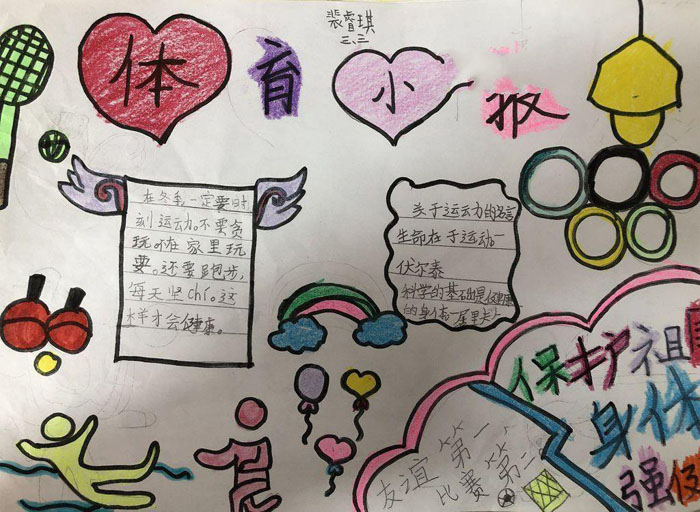 裴睿琪
三、三
体育小报
在冬季一定要时
刻运动。不要贪
玩。不在家里玩
要。还要跑步,
每天坚chí。这
样才会健康。
关于运动的名言
生命在于运动一
伏尔泰
科学的基础是健康
的身体一居里夫人
保护祖
身体
强
友谊第一
比赛第二